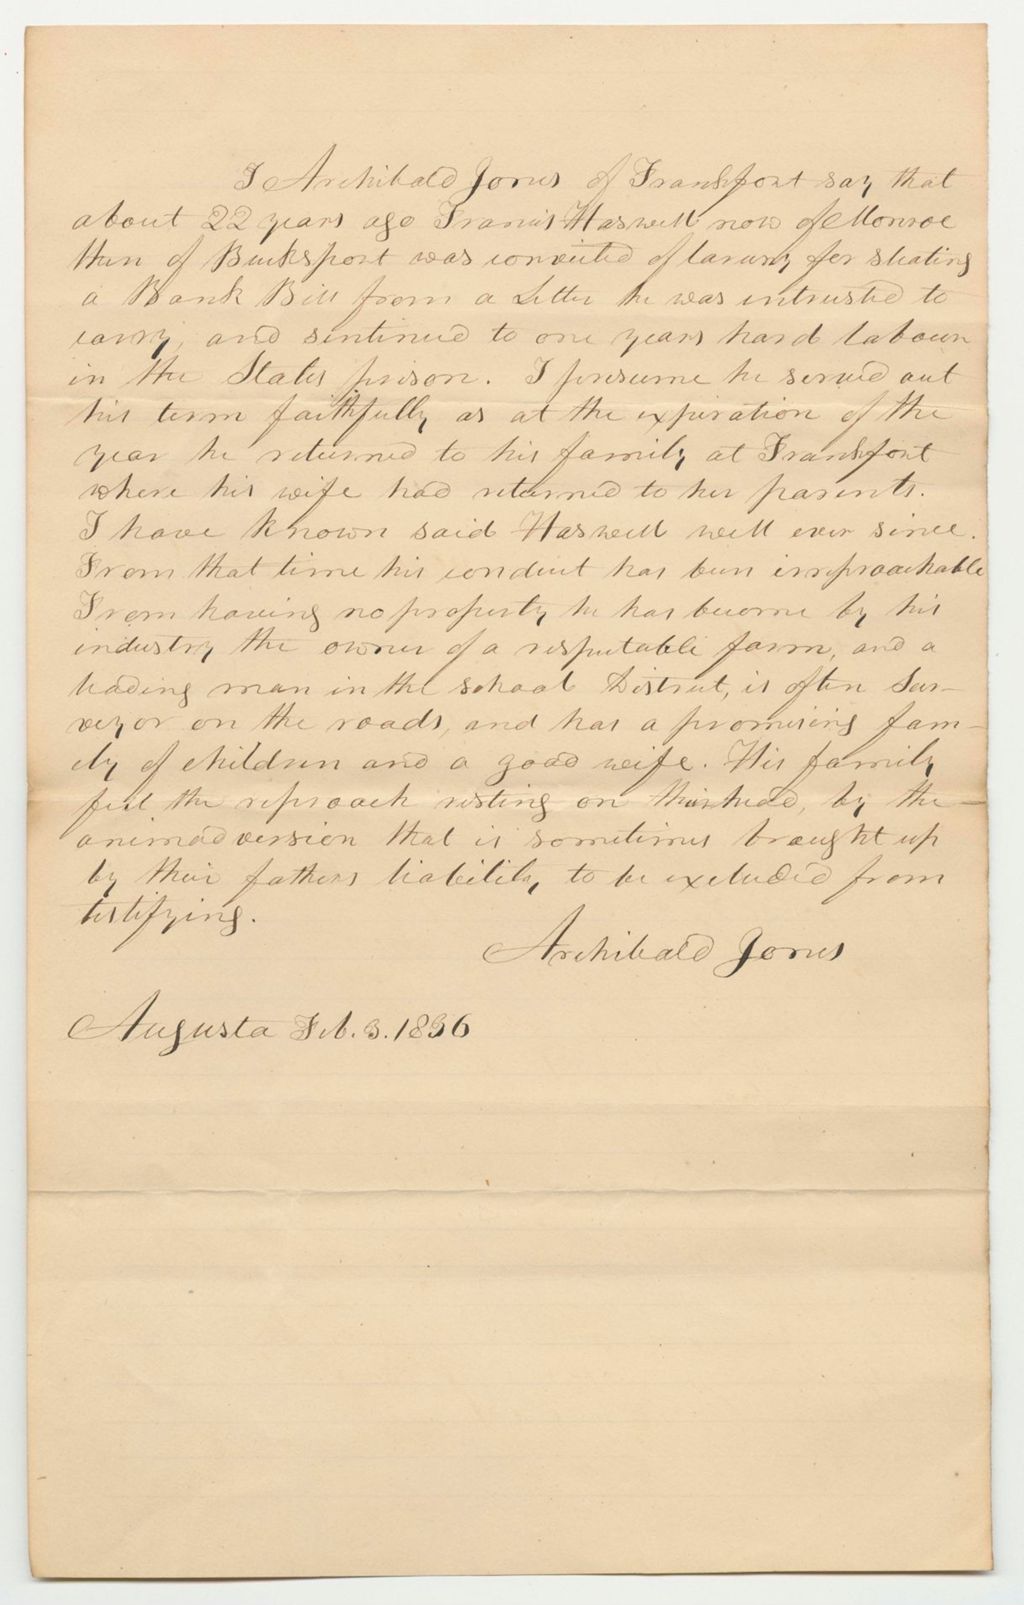 I Archibald Jones of Frankfort say that
about 22 years ago Francis Haswell now of Monroe
then of Bucksport was convicted of larceny for stealing
a Bank Bill from a Letter he was intrusted to
carry, and sentenced to one years hard labour
in the States prison. I presume he served out
his term faithfully as at the expiration of the
year he returned to his family at Frankfort
where his wife had returned to her parents.
I have known said Haswell well ever since.
From that time his conduct has been irreproachable
From having no property he has become by his
industry the owner of a respectable farm, and a
leading man in the school District, is often Sur-
veyor on the roads, and has a promising fam-
ily of children and a good wife. His family
feel the reproach resting on their head, by the
animadversion that is sometimes brought up
by their fathers liability, to be excluded from
testifying.
Archibald Jones
Augusta Feb. 3. 1836